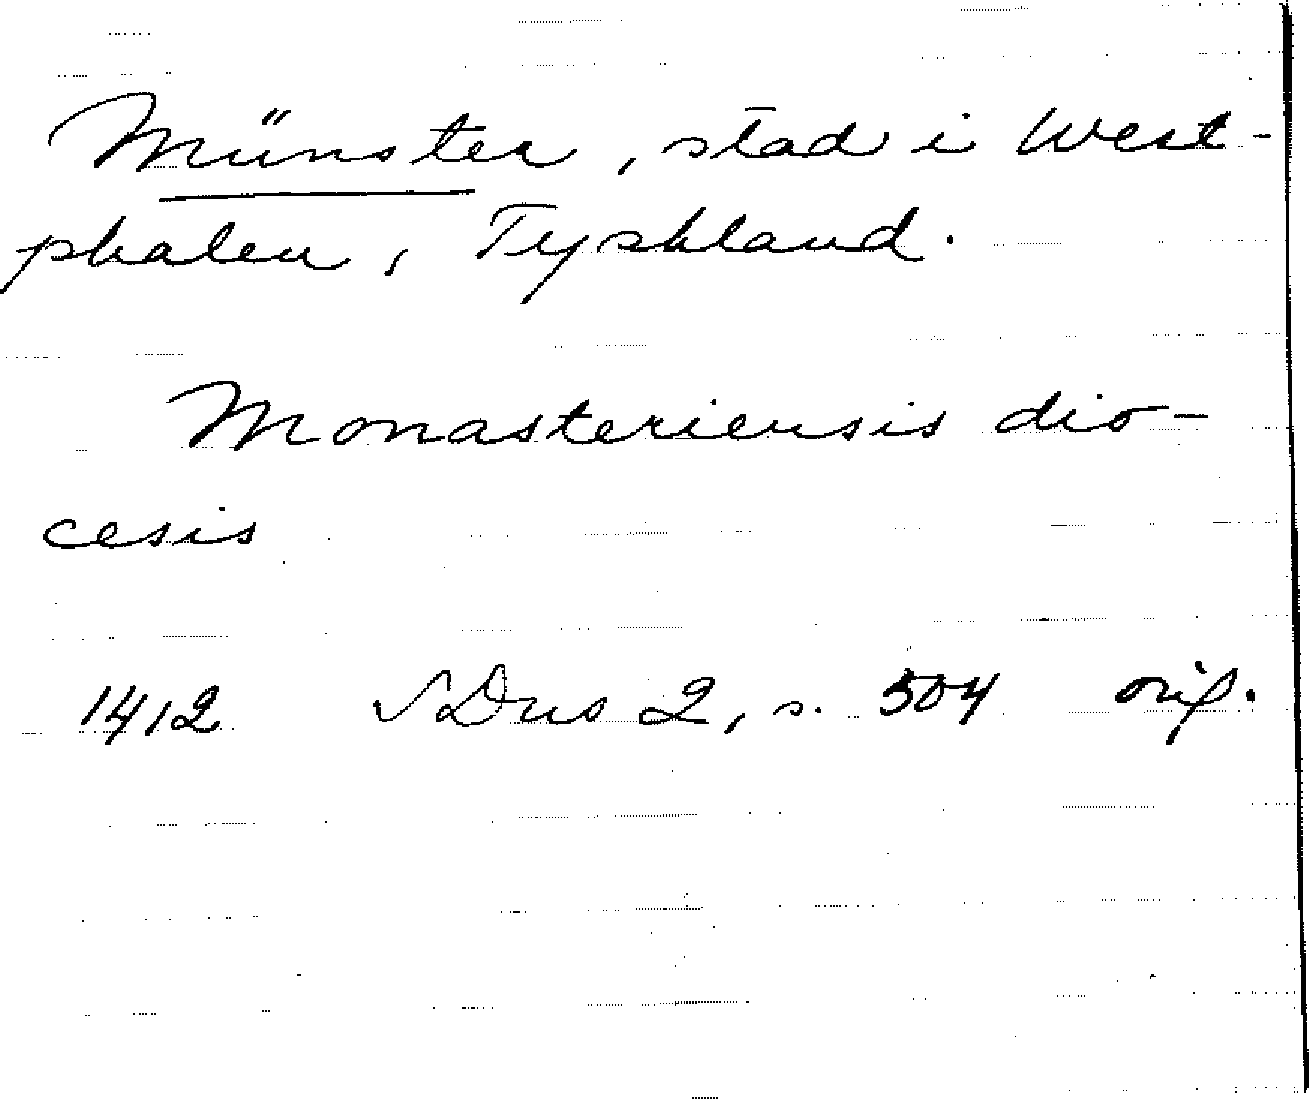 Münster, stad i West-
phalen, Tyskland.
Monasteriensis dio-
cesis
1412 SDns 2, s. 504 orig.